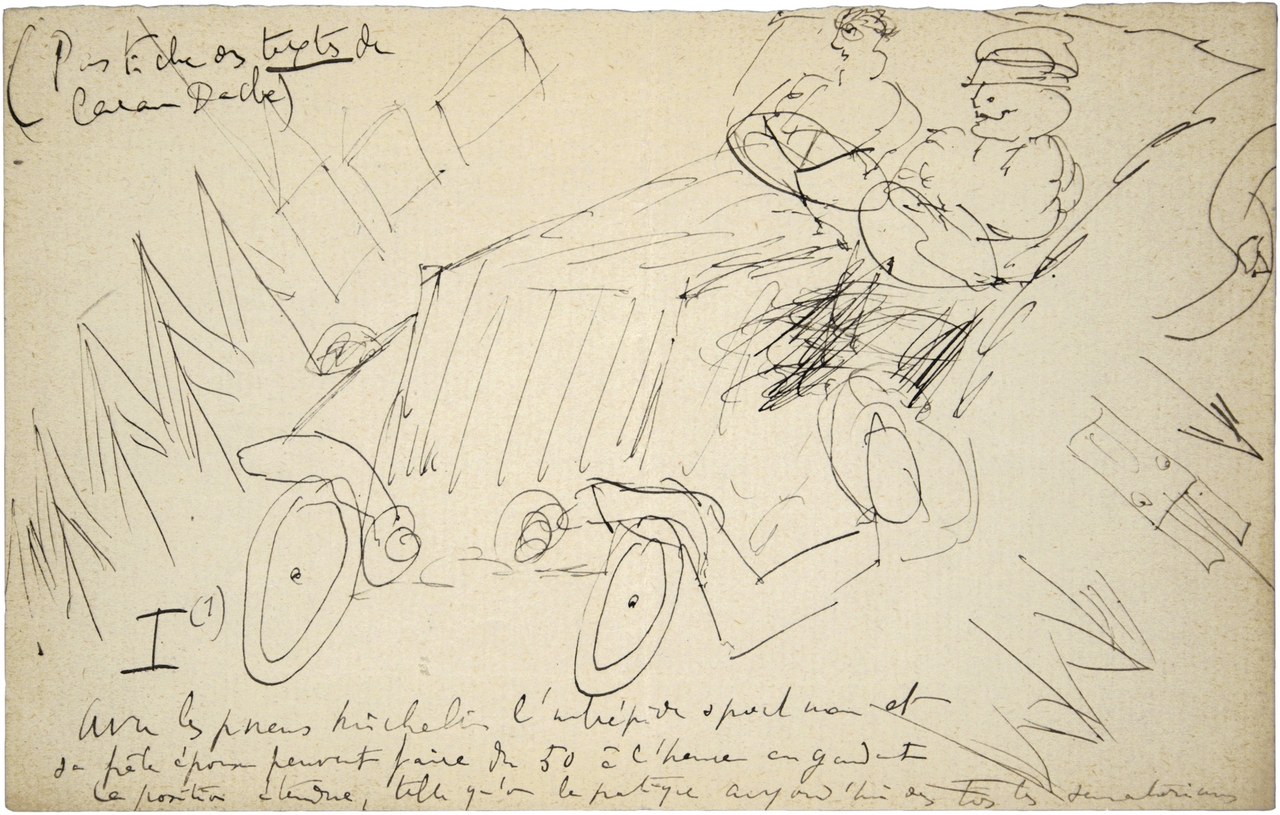 (Pastiche des textes de
Caran Dache)
I (1)
Avec les pneus Michelin l'intrépide sportman et
sa frêle épouse peuvent faire du 50 à l'heure en gardant
la position étendue, telle qu'on la pratique aujourd'hui ds tos les sanatoriums